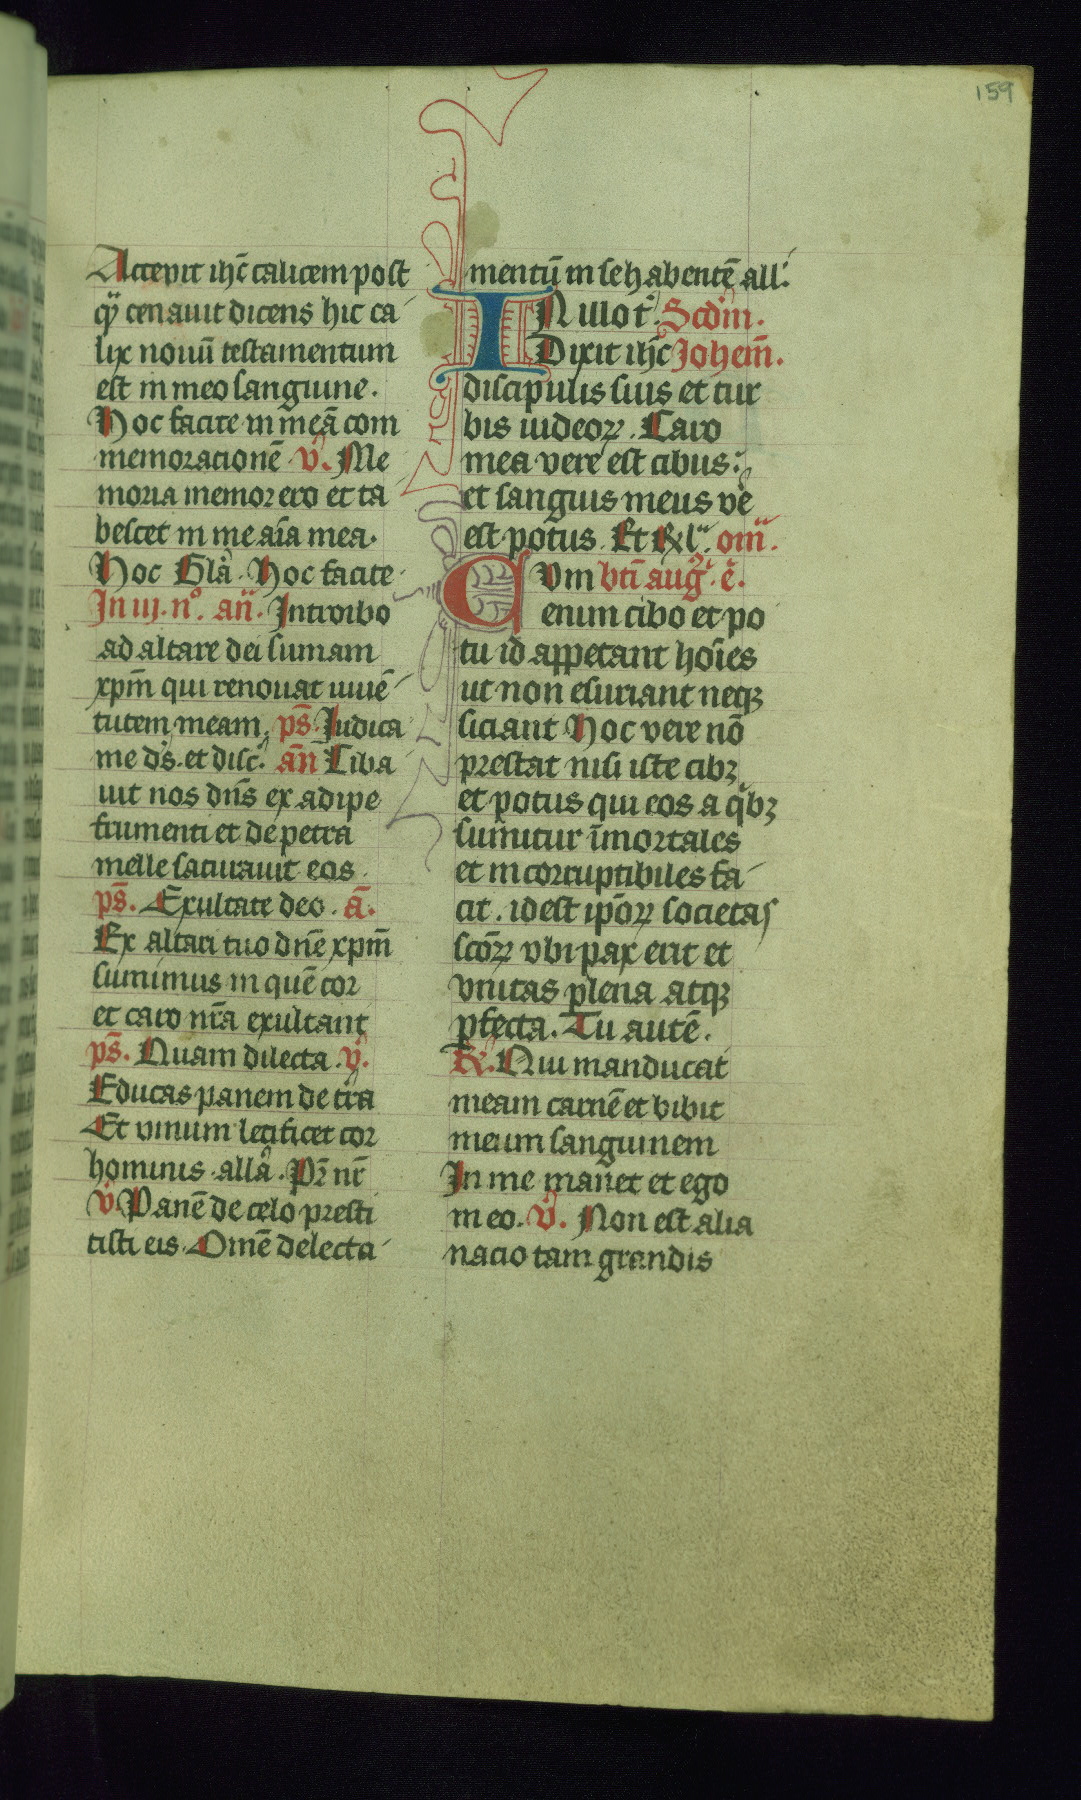 159
Accepit ihc̄ calicem post
qͣ cenauit dicens hic ca
lix nouū testamentum
est in meo sanguine.
Hoc facite in meā com
memoracionē v̄. Me
moria memor ero et ta
bescet in me aīa mea.
Hoc Glā. Hoc facite
In iij. n°. an̄. Introibo
ad altare dei sumam
xpm̄ qui renouat iuuē
tutem meam. ps̄. Iudica
me ds̄. et disc̄. an̄ Ciba
uit nos dn̄s ex adipe
frumenti et de petra
melle saturauit eos.
ps̄. Exultate deo. ā.
Ex altari tuo dn̄e xpm̄
sumimus in quē cor
et caro nr̄a exultant
ps̄. Quam dilecta. v̄.
Educas panem de tr̄a
Et vinum letificet cor
hominis. allā. Pr̄ nr̄
v̄ Panē de celo presti
tisti eis. Omē delecta
mentū in se habentē all̄.
IN illo t̄. Scd̄m.
Dixit ihc̄ Johem̄.
discipulis suis et tur
bis iudeoꝝ. Caro
mea vere est cibus:
et sanguis meus vē
est potus. Et rl̄. om̄.
CVm bt̄i aug. ē.
enim cibo et po
tu id appetant hoīes
ut non esuriant neqꝫ
siciant Hoc vere nō
prestat nisi iste cibꝫ
et potus qui eos a qͥbꝫ
sumitur īmortales
et incorruptibiles fa
cit. id est ip̄oꝝ societas
sc̄oꝝ vbi pax erit et
vnitas plena atqꝫ
ꝑfecta. Tu autē.
R̄. Qui manducat
meam carnē et bibit
meum sanguinem
In me manet et ego
in eo. v̄. Non est alia
nacio tam grandis